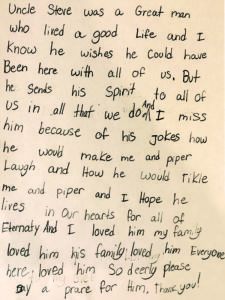 Uncle Steve was a Great man
who lived a good Life and I
Know he wishes he Could have
Been here with all of us. But
he Sends his Spirit to all of
us in all that we do And I miss
him because of his jokes how
he would make me and piper
Laugh and How he would tikle
me and piper and I Hope he
lives in Our hearts for all of
Eternaty And I loved him my family
loved him his family loved him Everyone
here loved him So deerly please
a prare for Him, Thank you!